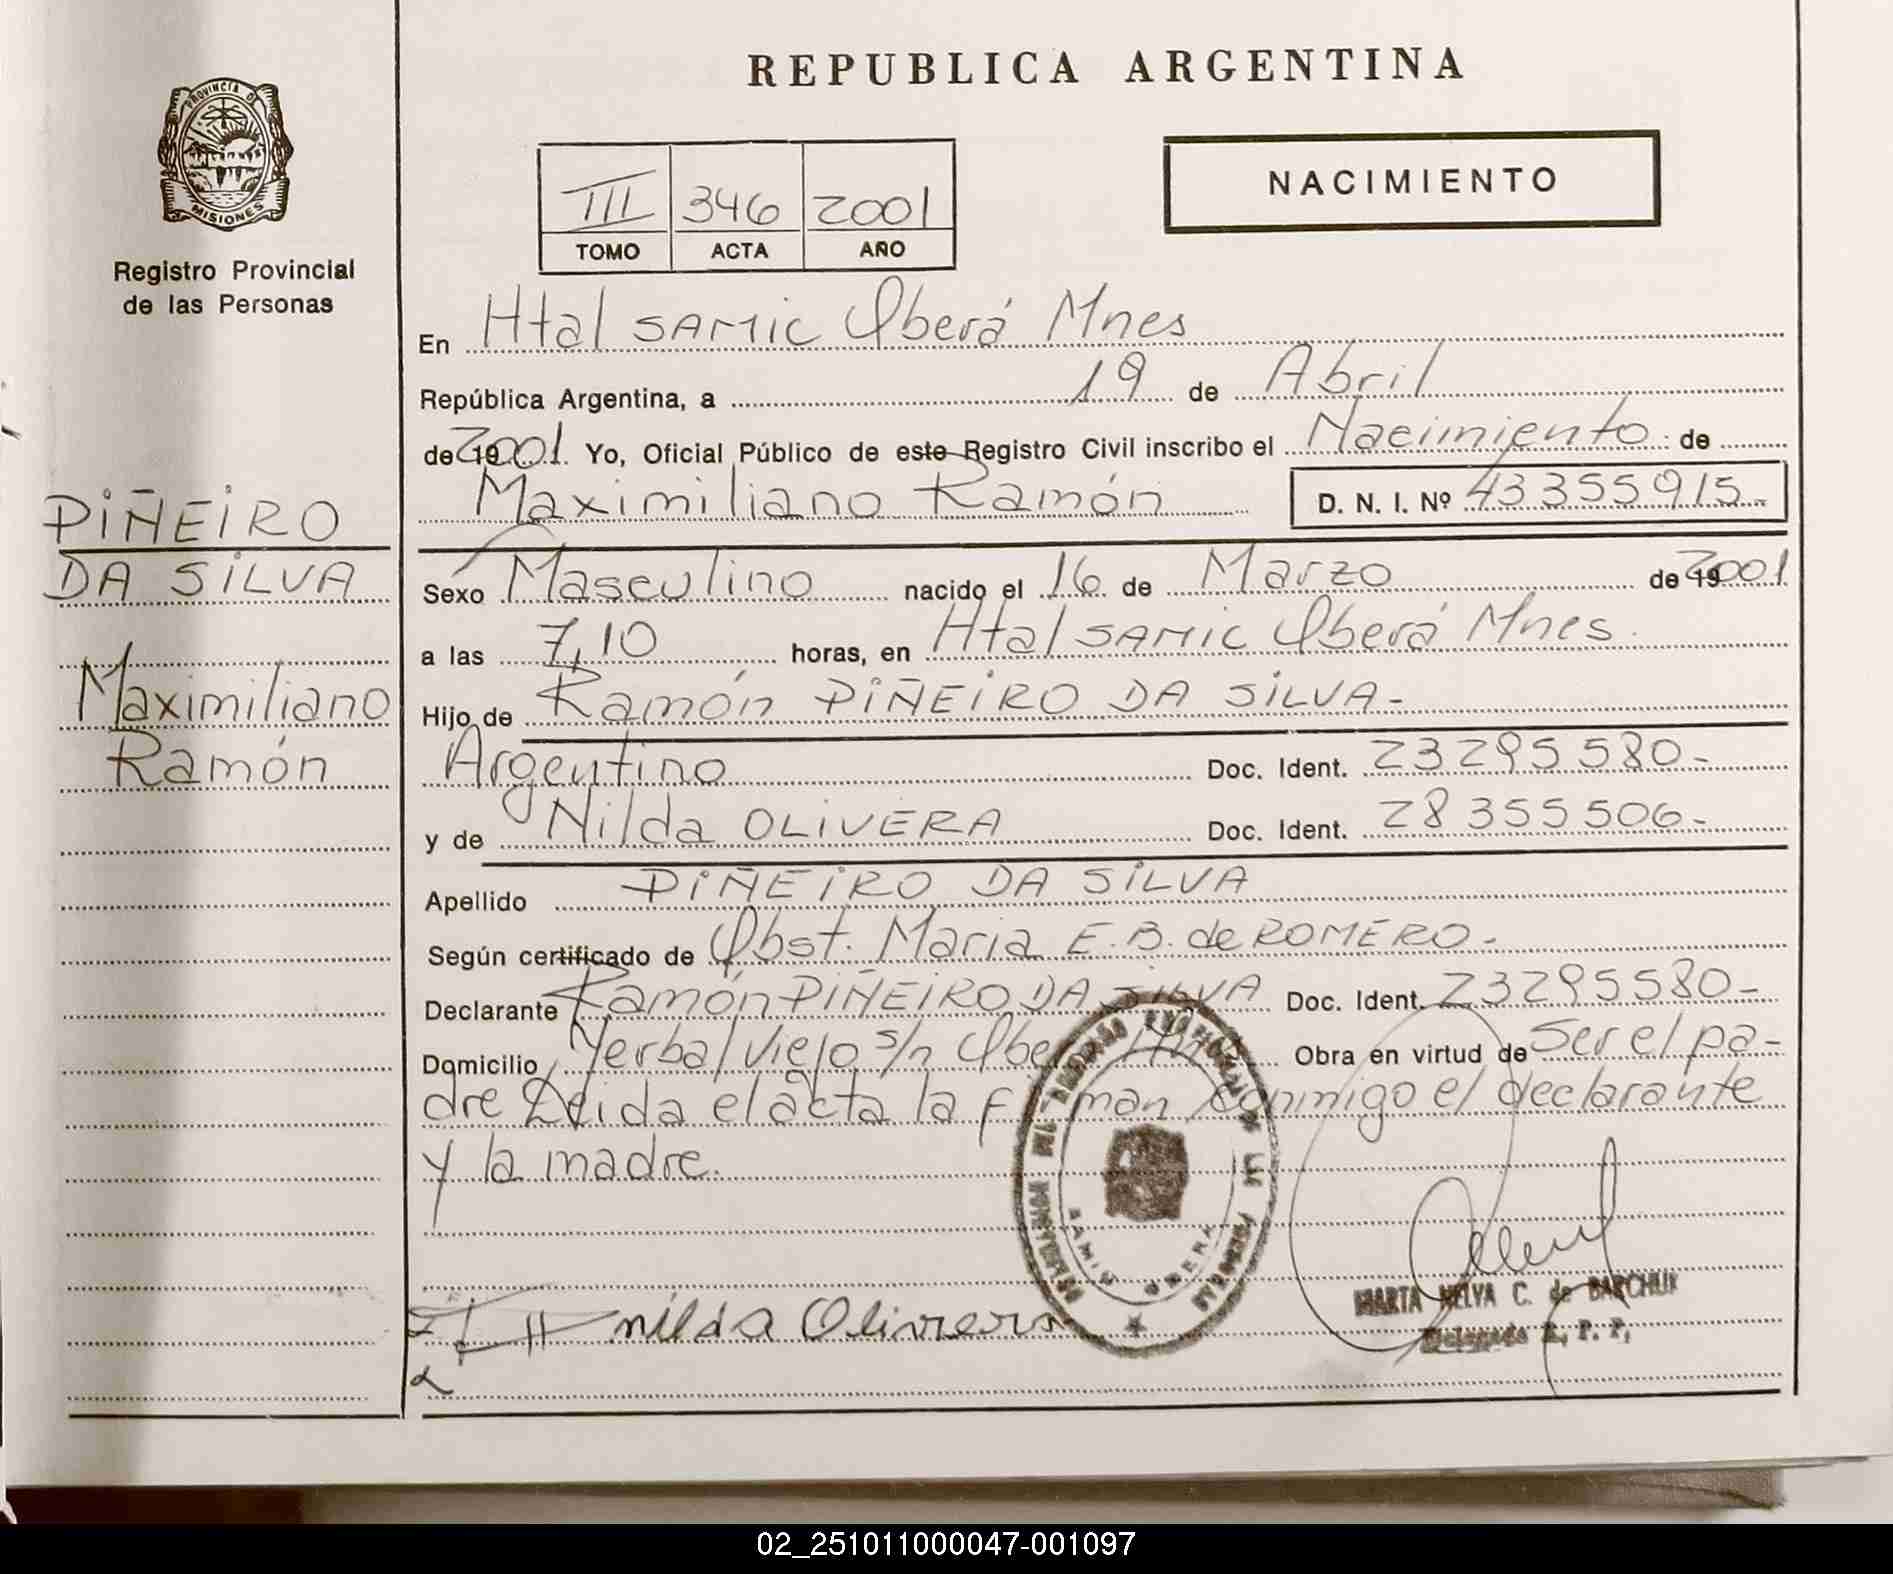 REPUBLICA ARGENTINA
PROVINCIA DE
MISIONES
Registro Provincial
de las Personas
NACIMIENTO
III 346 2001
TOMO ACTA AÑO
En Htal SAMIC Oberá Mnes
República Argentina, a 19 de Abril
de 19 2001 Yo, Oficial Público de este Registro Civil inscribo el Nacimiento de
Maximiliano Ramón D. N. I. Nº 43355915
PIÑEIRO
DA SILVA
Maximiliano
Ramón
Sexo Masculino nacido el 16 de Marzo de 19 2001
a las 7,10 horas, en Htal SAMIC Oberá Mnes.
Hijo de Ramón PIÑEIRO DA SILVA-
Argentino Doc. Ident. 23295580-
y de Nilda OLIVERA Doc. Ident. 28355506-
Apellido PIÑEIRO DA SILVA
Según certificado de Obst. Maria E.B. de ROMERO-
Declarante Ramón PIÑEIRO DA SILVA Doc. Ident. 23295580-
Domicilio Yerbal Viejo s/n Oberá Mnes Obra en virtud de Ser el pa-
dre Leida el acta la firman conmigo el declarante
y la madre.
SAMIC OBERA
nilda Olivera
MARTA NELVA C. de BARCHUK
Delegada R. P. P.
02_251011000047-001097